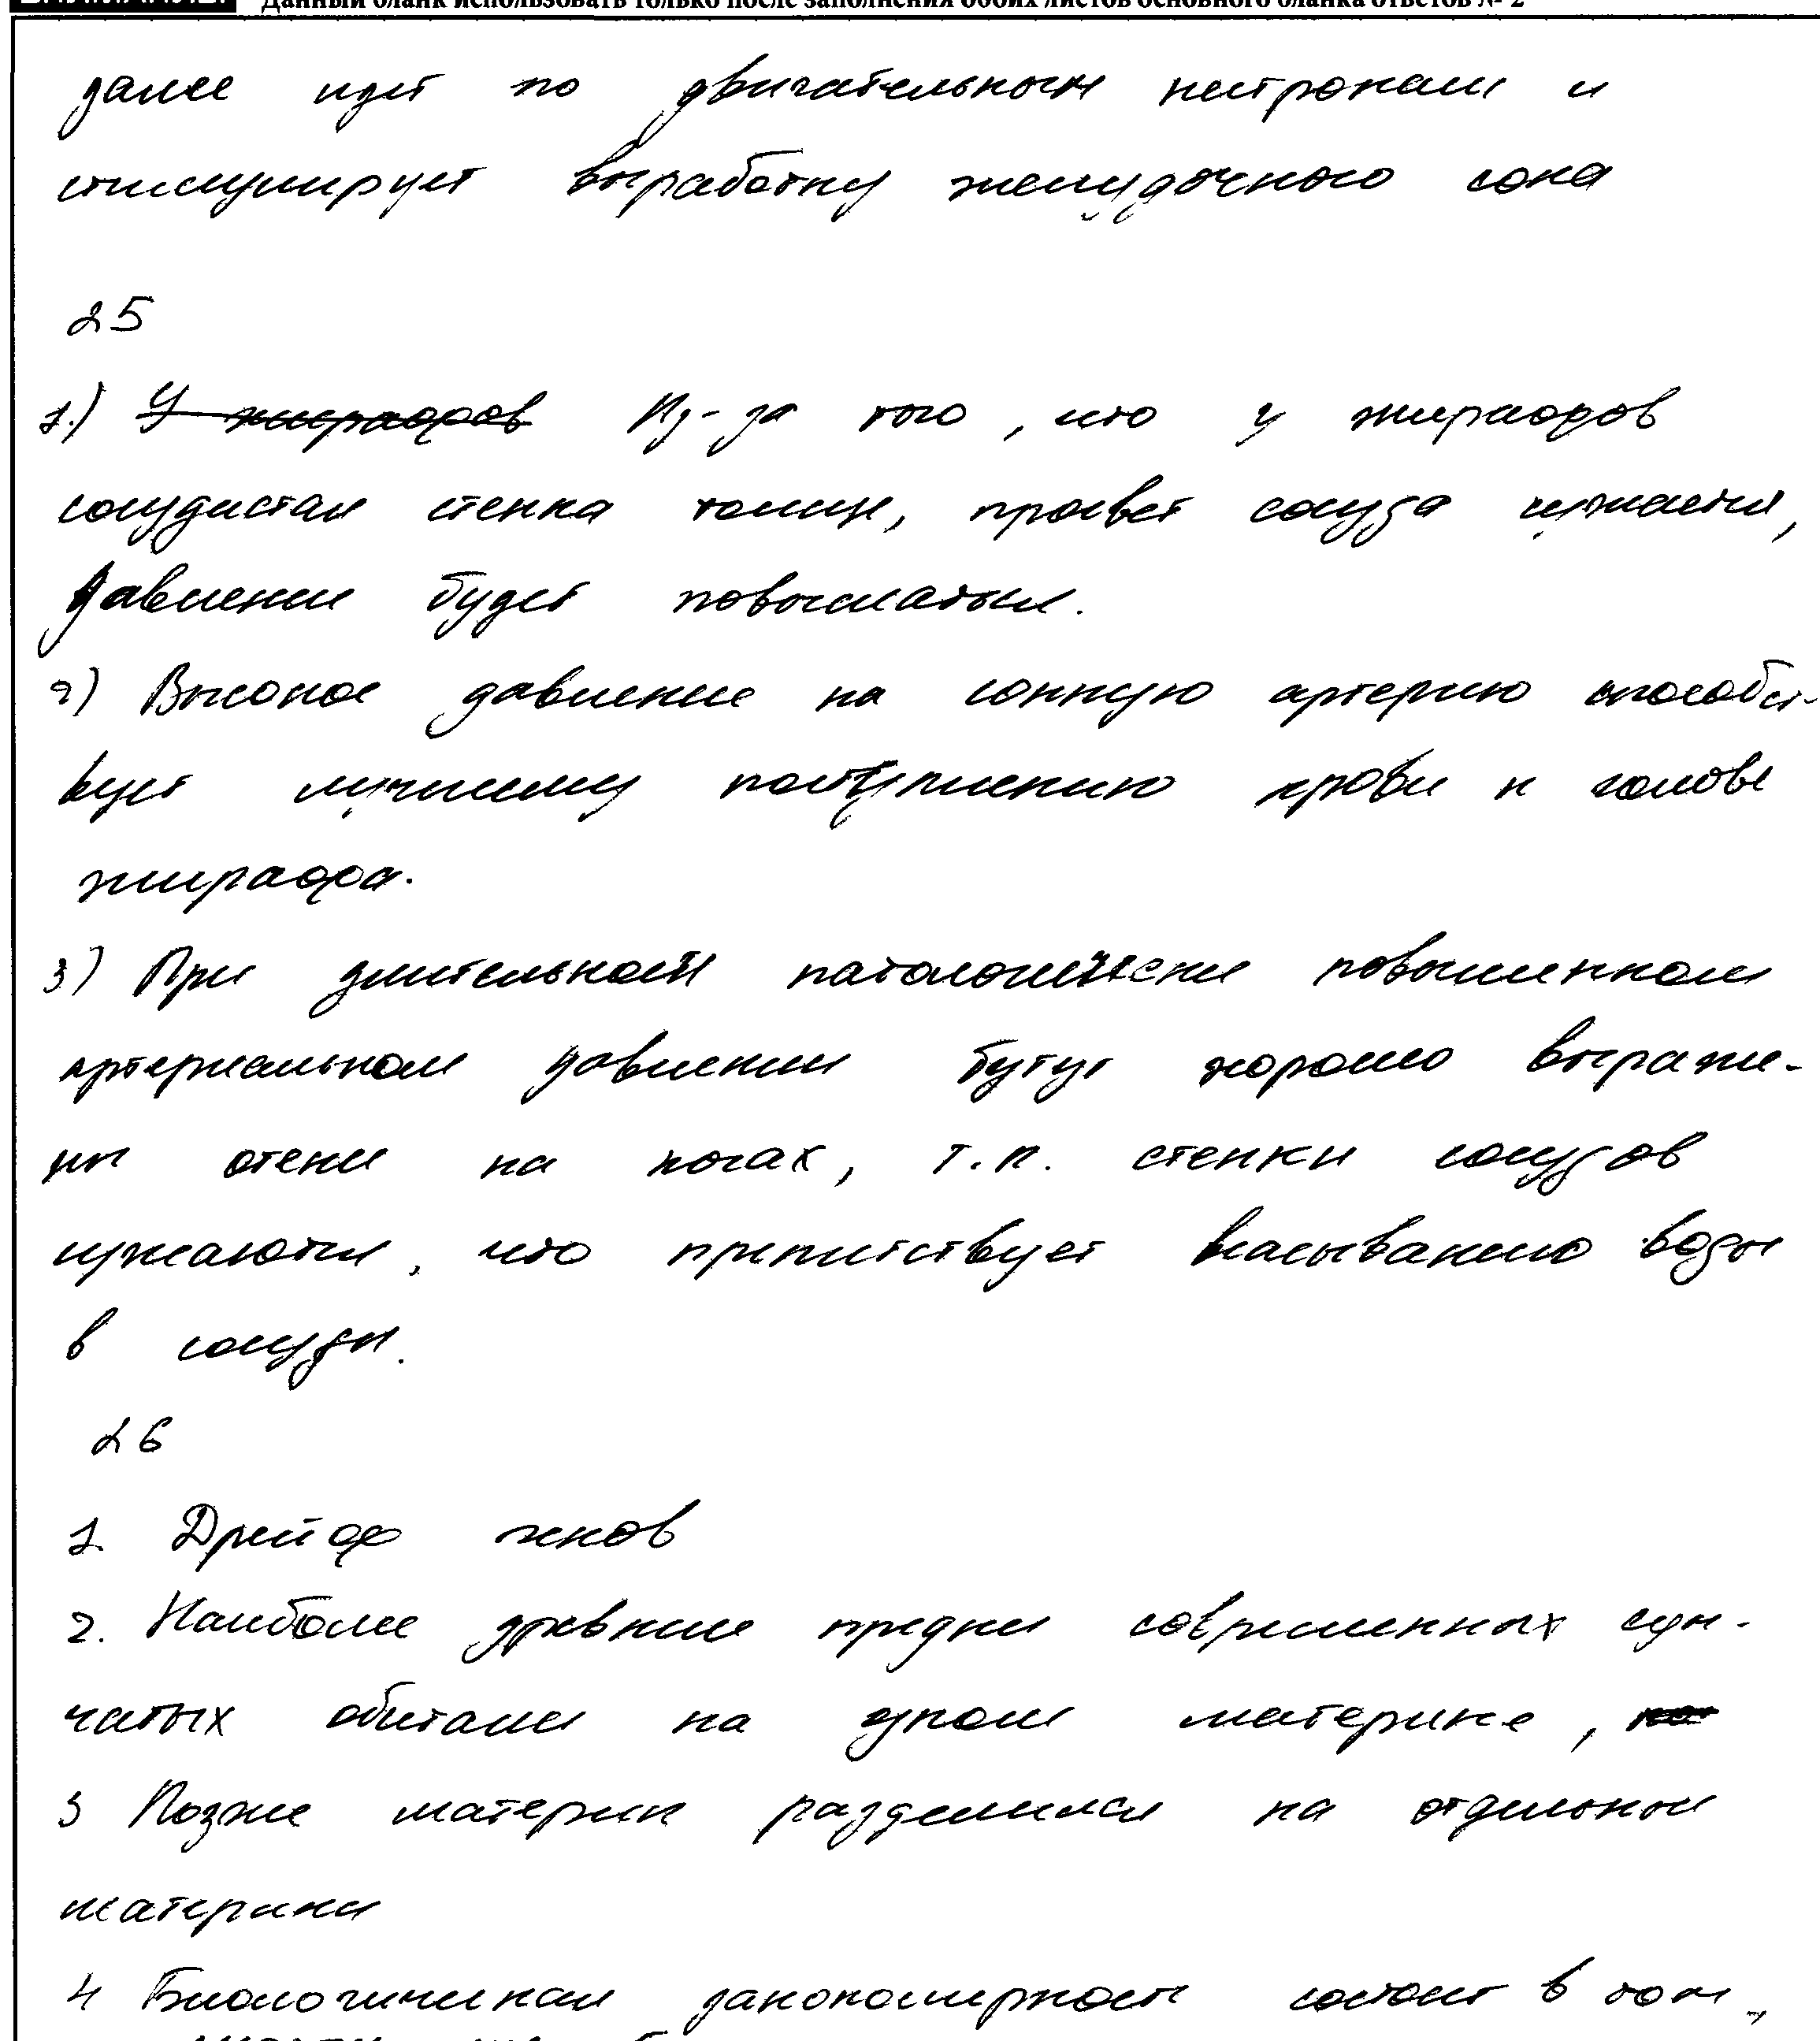 Данный бланк использовать только после заполнения обоих листов основного бланка ответов № 2
далее идет по двигательным нейронам и
стимулирует выработку желудочного сока
25
1.) У жирафов Из-за того, что у жирафов
сосудистая стенка толще, просвет сосуда сужается,
давление будет повышаться.
2) Высокое давление на сонную артерию способст-
вует лучшему поступлению крови к голове
жирафа.
3) При длительном патологически повышенном
артериальном давлении будут хорошо выраже-
ны отеки на ногах, т.к. стенки сосудов
сужаются, что препятствует всасыванию воды
в сосуды.
26
1. Дрейф генов
2. Наиболее древние предки современных сум-
чатых обитали на одном материке,
3 Позже материк разделился на отдельные
материки
4 Биологическая закономерность состоит в том,